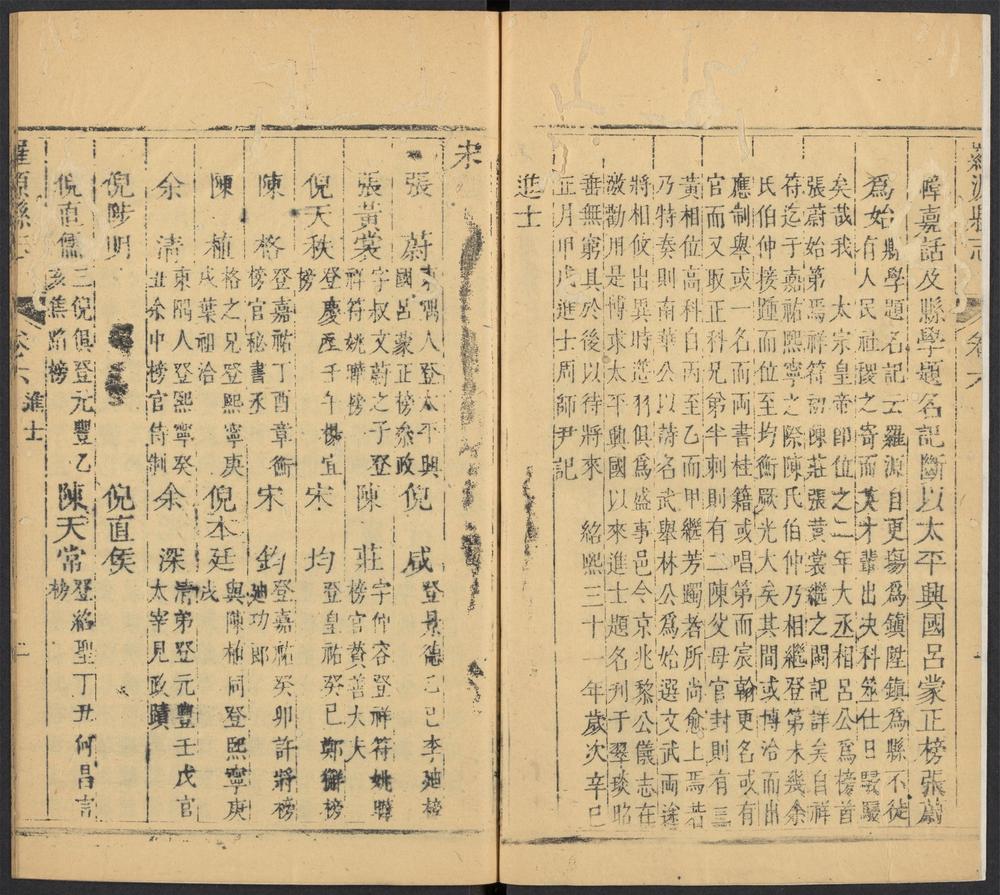 羅源縣志
卷六
碑嘉話及縣學題名記斷以太平興國呂蒙正榜張蔚
爲始縣學題名記云羅源自更場爲鎮陞鎮爲縣不徒
有人民社稷之寄而英才輩出決科筮仕日駸駸
矣哉我 太宗皇帝即位之二年大丞相呂公爲榜首
張蔚始第焉祥符初陳莊張黃裳繼之閩記詳矣自祥
符迄于嘉祐熙寧之際陳氏伯仲乃相繼登第未幾余
氏伯仲接踵而位至均衡厥光大矣其間或博洽而出
應制舉或一名而兩書桂籍或唱第而宸翰更名或有
官而又取正科兄弟半刺則有二陳父母官封則有三
黃相位高科自丙至乙而甲繼芳躅者所尚愈上焉若
乃特奏則南華公以詩名武舉林公爲始選文武兩途
將相攸出異時濟羽俱爲盛事邑令京兆黎公儀志在
激勸用是博求太平興國以來進士題名刋于翠琰昭
垂無窮其於後以待將來 紹熙三十一年歲次辛巳
正月甲戌進士周師尹記
進士
宋
張蔚東隅人登太平興國呂蒙正榜叅政
倪咸登景德乙巳李廸榜
張黃裳字叔文蔚之子登祥符姚曄榜
陳莊字仲容登祥符姚曄榜官贊善大夫
倪天秩登慶歷壬午楊寘榜
宋均登皇祐癸巳鄭獬榜
陳格登嘉祐丁酉章衡榜官秘書丞
宋鈞登嘉祐癸卯許將榜廸功郎
陳植格之兄登熙寧庚戌葉祖洽
倪本廷與陳植同登熙寧庚戌
余清東隅人登熙寧癸丑余中榜官待制
余深清弟登元豐壬戊官太宰見政蹟
倪陟明
倪直侯
倪直儒三倪俱登元豐乙亥焦蹈榜
陳天常登紹聖丁丑何昌言榜
羅源縣志
卷六
進士
二